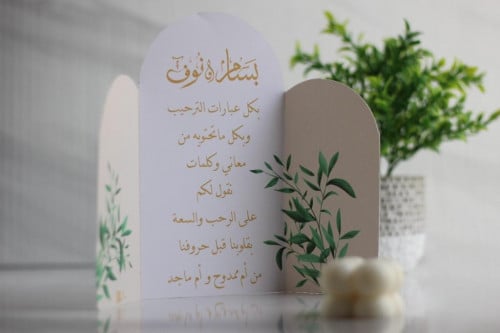 بسام & نوف
بكل عبارات الترحيب
وبكل ما تحتويه من
معاني وكلمات
نقول لكم
على الرحب والسعة
بقلوبنا قبل حروفنا
من أم ممدوح و أم ماجد